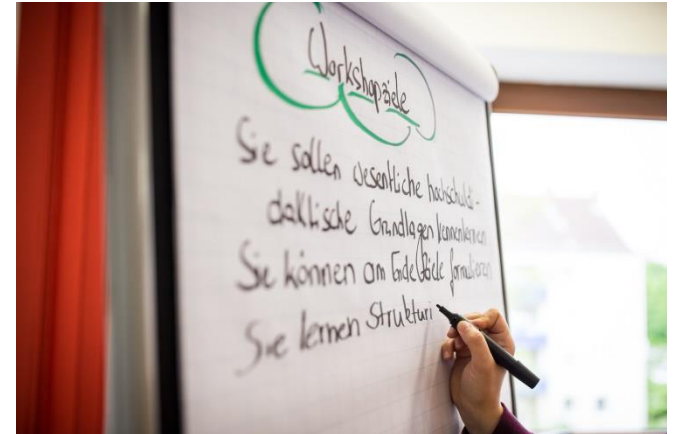 Workshopziele
Sie sollen wesentliche hochschuldi-
daktische Grundlagen kennenlernen
Sie können am Ende Ziele formulieren
Sie lernen Strukturi